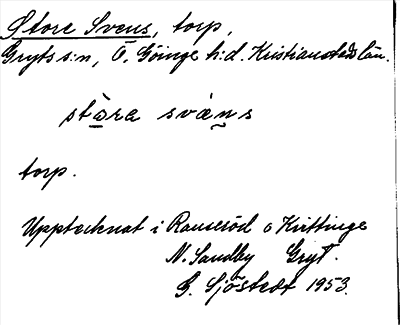 Store Svens, torp,
Gryts s:n, Ö. Göinge h:d. Kristianstads län.
stòra svàns
torp.
Upptecknat i Ranseröd o Kvittinge
N. Sandby Gryt.
G. Sjöstedt 1953.